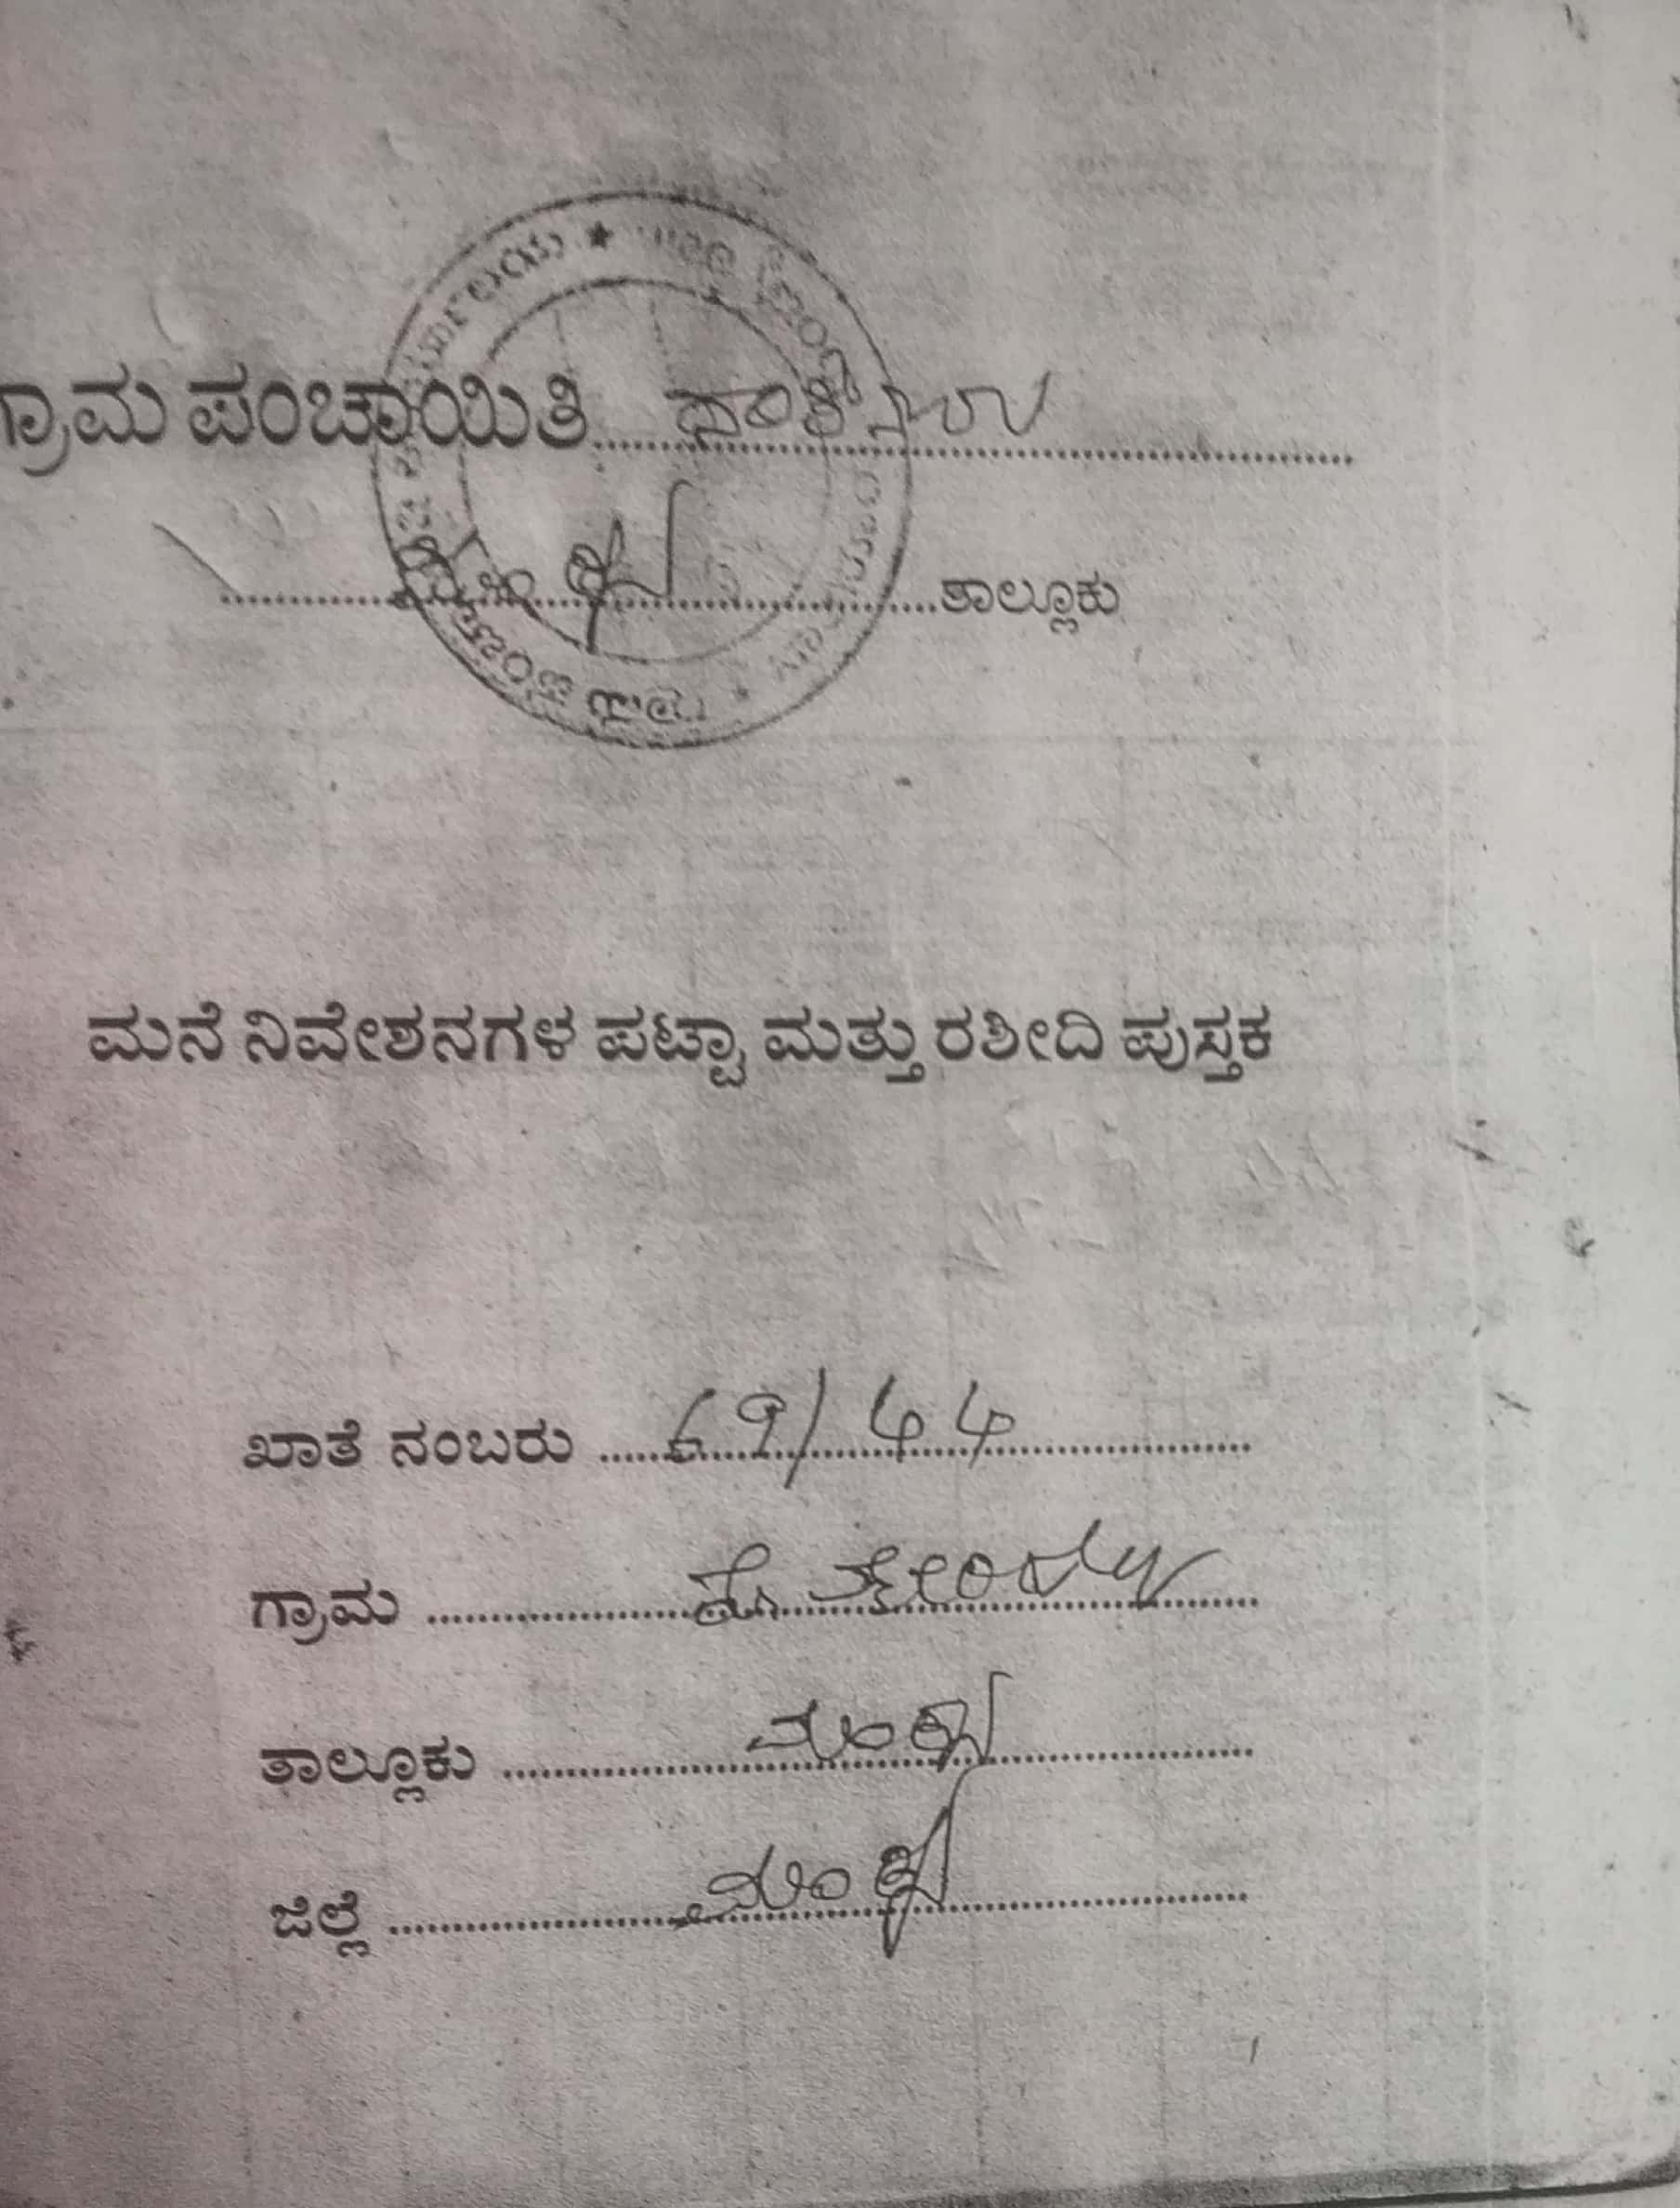 ಗ್ರಾಮ ಪಂಚಾಯಿತಿ
ಮಂಡ್ಯ ತಾಲ್ಲೂಕು
ಮನೆ ನಿವೇಶನಗಳ ಪಟ್ಟಾ ಮತ್ತು ರಶೀದಿ ಪುಸ್ತಕ
ಖಾತೆ ನಂಬರು 69/44
ಗ್ರಾಮ
ತಾಲ್ಲೂಕು ಮಂಡ್ಯ
ಜಿಲ್ಲೆ ಮಂಡ್ಯ